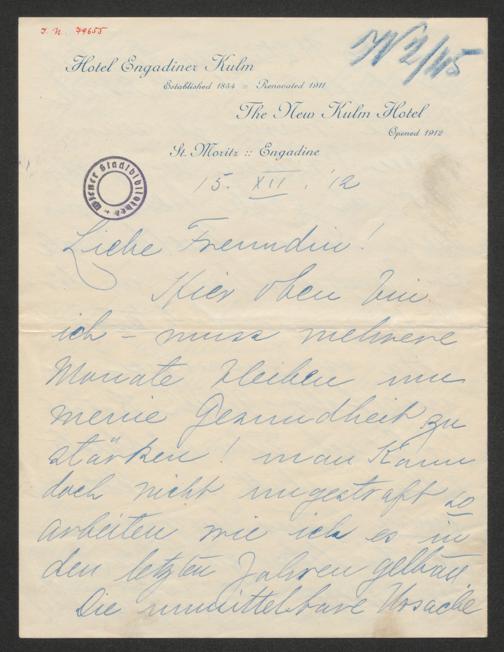 I. N. 79655
IV 2/45
Hotel Engadiner Kulm
Established 1854 = Renovated 1911
The New Kulm Hotel
Opened 1912
St. Moritz :: Engadine
Wiener Stadtbibliothek
15. XII. '12
Liebe Freundin!
Hier oben bin
ich – muss mehrere
Monate bleiben um
meine Gesundheit zu
stärken! man kann
doch nicht ungestraft so
arbeiten wie ich es in
den letzten Jahren gethan
Die unmittelbare Ursache